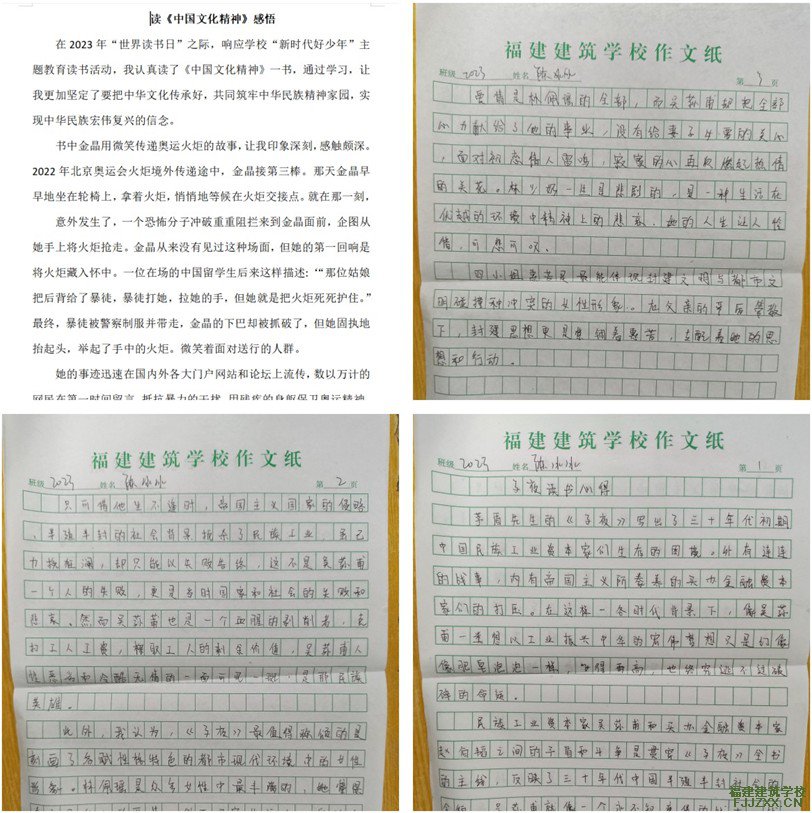 读《中国文化精神》感悟
在 2023 年“世界读书日”之际，响应学校“新时代好少年”主
题教育读书活动，我认真读了《中国文化精神》一书，通过学习，让
我更加坚定了要把中华文化传承好，共同筑牢中华民族精神家园，实
现中华民族宏伟复兴的信念。
书中金晶用微笑传递奥运火炬的故事，让我印象深刻，感触颇深。
2022 年北京奥运会火炬境外传递途中，金晶接第三棒。那天金晶早
早地坐在轮椅上，拿着火炬，悄悄地等候在火炬交接点。就在那一刻，
意外发生了，一个恐怖分子冲破重重阻拦来到金晶面前，企图从
她手上将火炬抢走。金晶从来没有见过这种场面，但她的第一回响是
将火炬藏入怀中。一位在场的中国留学生后来这样描述：“"那位姑娘
把后背给了暴徒，暴徒打她，拉她的手，但她就是把火炬死死护住。”
最终，暴徒被警察制服并带走，金晶的下巴却被抓破了，但她固执地
抬起头，举起了手中的火炬。微笑着面对送行的人群。
她的事迹迅速在国内外各大门户网站和论坛上流传，数以万计的
网民在第一时间留言，抵抗暴力的干扰，用残疾的身躯保卫奥运精神
福建建筑学校作文纸
班级 2023 姓名 陈冰冰 第 3 页
爱情是林佩瑶的全部，而吴荪甫却把全部
心力献给了他的事业，没有给妻子必要的关心
，面对初恋情人雷鸣，寂寞的心再次燃起热情
的火花。林少奶一生是悲剧的，是一种生活在
优越的环境中精神上的悲哀，她的人生让人怜
惜，可悲可叹。
四小姐惠芳是最能体现封建文明与都市文
明碰撞和冲突的女性形象。在父亲的严厉管教
下，封建思想更是束缚着惠芳，支配着她的思
想和行动。
福建建筑学校作文纸
班级 2023 姓名 陈冰冰 第 2 页
只可惜他生不逢时，帝国主义国家的侵略
，半殖半封的社会背景扼杀了民族工业，虽己
力挽狂澜，却只能以失败告终，这不是吴荪甫
一个人的失败，更是当时国家和社会的失败和
悲哀。然而吴荪甫也是一个血腥的剥削者，克
扣工人工资，榨取工人的剩余价值，吴荪甫人
性丑恶而冷酷无情的一面可见一斑，是非民族
英雄。
此外，我认为，《子夜》最值得称颂的是
刻画了各赋性格特色的都市现代环境中的女性
形象。林佩瑶是众多女性中最丰满的，她曾是
福建建筑学校作文纸
班级 2023 姓名 陈冰冰 第 1 页
子夜读书心得
茅盾先生的《子夜》写出了三十年代初期
中国民族工业资本家们生存的困境。外有连连
的战事，内有帝国主义所豢养的买办金融资本
家们的打压。在这样一务时代背景下，像吴荪
甫一类想以工业振兴中华的宏伟梦想只是幻像
像肥皂泡泡一样，飞得再高，也终究逃不过破
碎的命运。
民族工业资本家吴荪甫和买办金融资本家
赵伯韬之间的矛盾和斗争是贯穿《子夜》全书
的主线，反映了三十年代中国半殖半封社会的
福建建筑学校
FJJZXX.CN